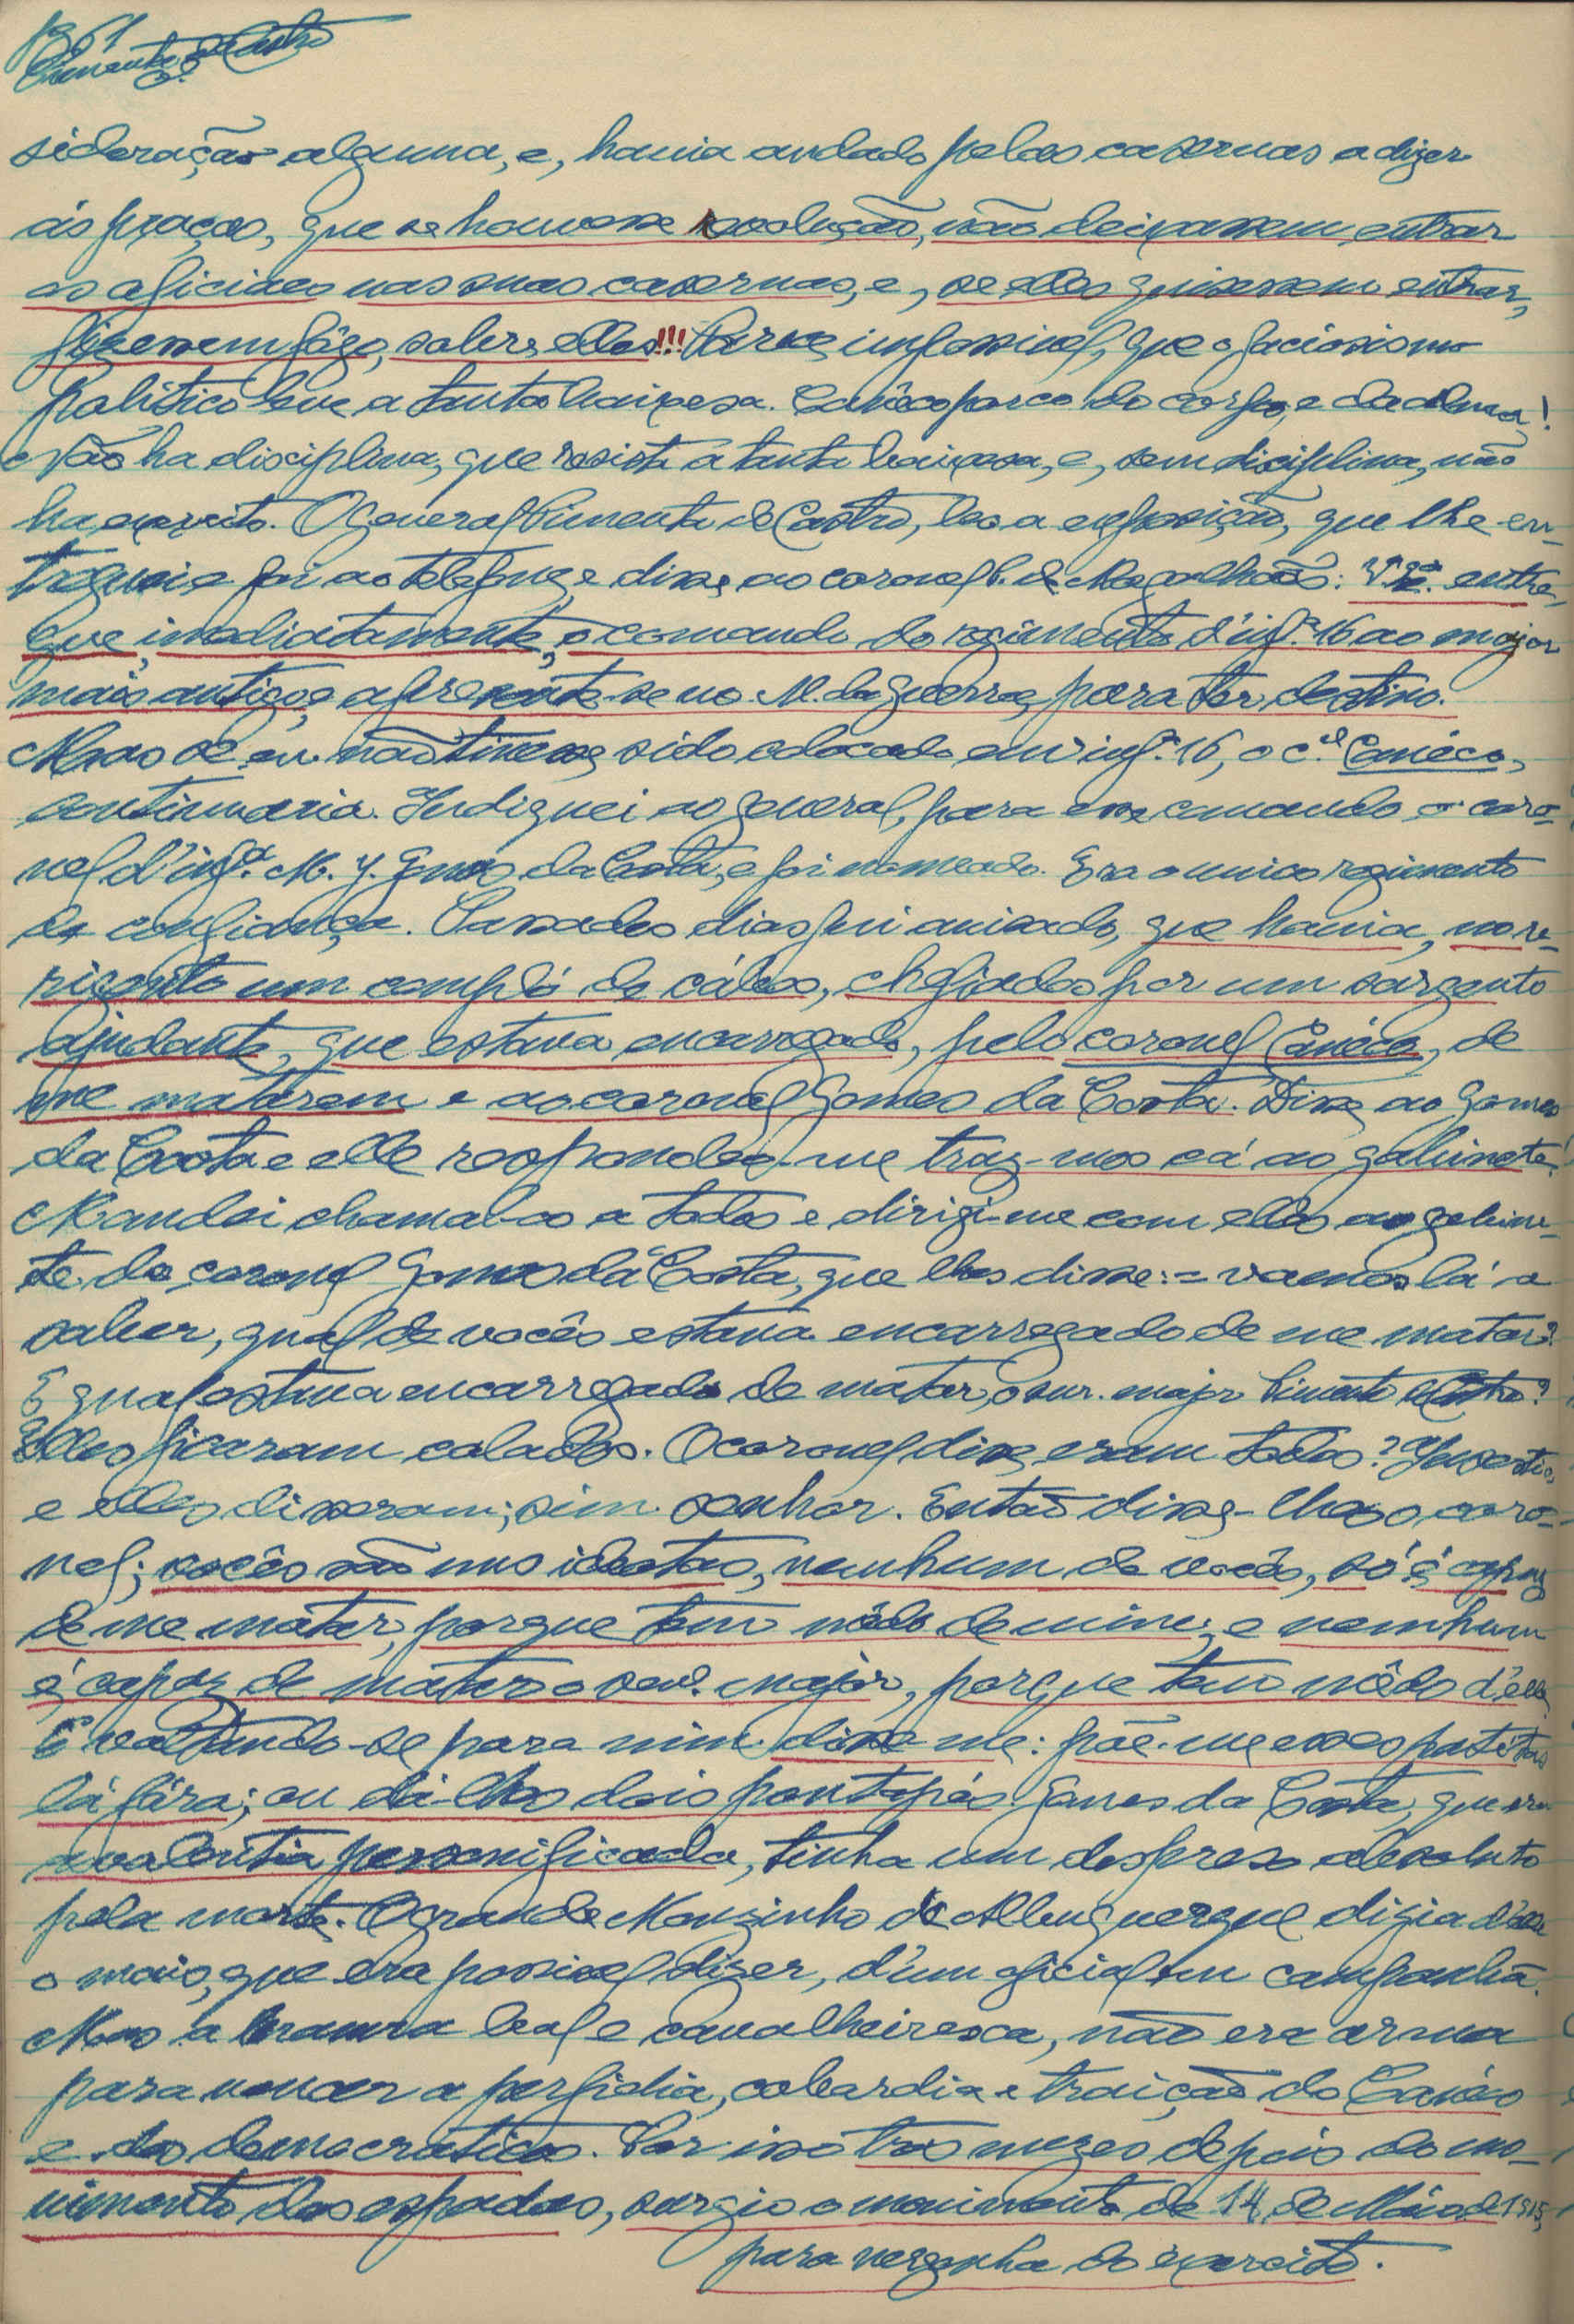 Pimenta de Castro
sideração alguma, e, havia andado pelas casernas a dizer
ás praças, que se houvesse revolução, não deixassem entrar
os oficiaes nas suas casernas, e, se elles quizessem entrar,
fizessem fôgo, sobre elles!!! Parece impossivel, que o faciosismo
politico leve a tanta baixesa. Canêco porco do corpo, e da alma!
Não ha disciplina, que resista a tanta baixesa, e, sem disciplina, não
ha exercito. O General Pimenta de Castro, leo a exposição, que lhe en-
treguei e foi ao telefone, e disse ao coronel P. de Magalhães: V. Exª. entre-
gue, imediatamente, o comando do regimento d'infª. 16 ao major
mais antigo, e apresente-se no M. da Guerra, para ter destino.
Mas se eu não tivesse sido colocado em infª. 16, o c.el Canéco,
continuaria. Indiquei ao general, para esse comando o coro-
nel d'infª. M. Gomes da Costa, e foi nomeado. Era o unico regimento
de confiança. Passados dias fui avisado, que havia, no re-
gimento um compló de cábos, chefiados por um sargento
ajudante, que estava encarregado, pelo coronel Canéco, de
me matarem e ao coronel Gomes da Costa. Disse ao Gomes
da Costa e elle respondeo-me traz-mos cá ao gabinete!
Mandei chamal-os a todos e dirigi-me com elles ao gabine-
te do coronel Gomes da Costa, que lhes disse: = vamos lá a
saber, qual de vocês estava encarregado de me matar?
E qual estava encarregado de matar, o snr. major Pimenta de Castro?
Elles ficaram calados. O coronel disse, eram todos?
e elles disseram; sim senhor. Então disse-lhes o coro-
nel; vocês são uns idiotas, nenhum de vocês, só é capaz
de me matar, porque tem mêdo de mim; e nenhum
é capaz de matar o snr. major, porque tem mêdo d'elle
E voltando-se para mim disse-me: põe-me esses patetas
lá fóra; ou dá-lhes dois pontapés. Gomes da Costa, que era
a valentia personificada, tinha um despreso absoluto
pela morte. O grande Mouzinho de Albuquerque dizia d'elle
o mais, que era possivel dizer, d'um oficial em campanha.
Mas a bravura leal e cavalheiresca, não era arma
para vencer a perfidia, cobardia e traição do Canéco
e dos democraticos. Por isso tres mezes depois do mo-
vimento das espadas, surgio o movimento de 14, de Maio de 1915,
para vergonha do exercito.